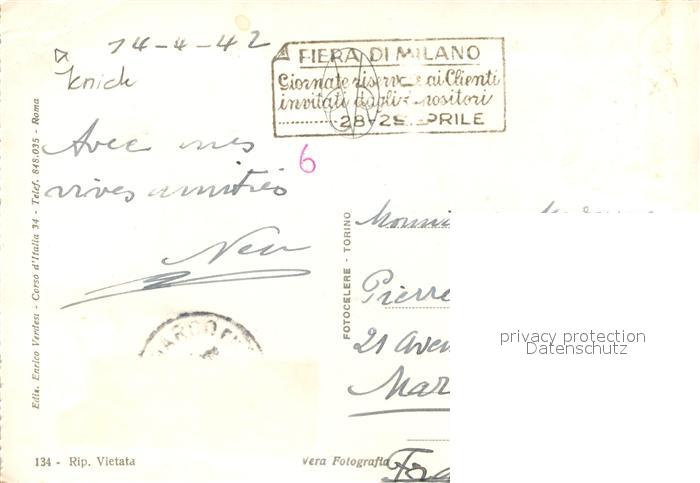 14-4-42
Knick
FIERA DI MILANO
Giornate riserv e ai Clienti
invitati dagli e positori
28-29 APRILE
Avec mes
vives amitiés
6
Edix. Enrico Verdesi - Corso d'Italia 34 - Telef. 848.035 - Roma
FOTOCELERE - TORINO
Pierre
21 Aven
Mar
Fra
privacy protection
Datenschutz
134 - Rip. Vietata
Vera Fotografia